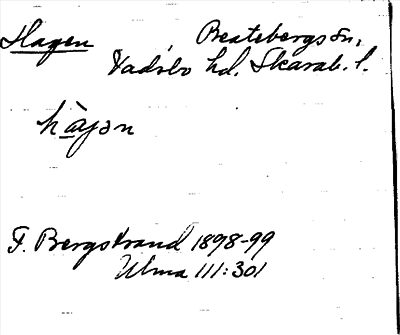 Hagen Beatebergs sn,
Vadsbo hd. Skarab. l.
hàɡən
F. Bergstrand 1898-99
Ulma 111:301